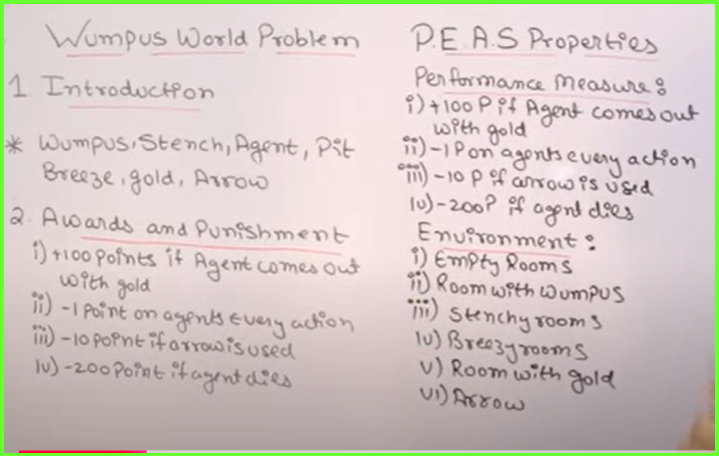 Wumpus World Problem
1 Introduction
* Wumpus, Stench, Agent, Pit
Breeze, gold, Arrow
2. Awards and Punishment
i) +100 points if Agent comes out
with gold
ii) -1 point on agents Every action
iii) -10 point if arrow is used
iv) -200 point if agent dies
P.E.A.S Properties
Performance Measure:
i) +100 P if Agent comes out
with gold
ii) -1 P on agents every action
iii) -10 P if arrow is used
iv) -200P if agent dies
Environment:
i) Empty Rooms
ii) Room with Wumpus
iii) Stenchy rooms
iv) Breezy rooms
v) Room with gold
vi) Arrow